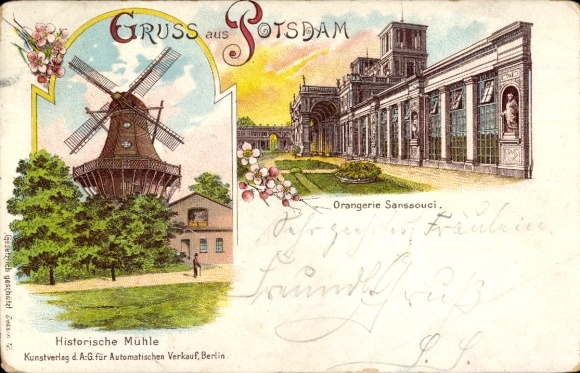 Gruss aus Potsdam
Orangerie Sanssouci.
Sehr geehrtes Fräulein.
Freundl. Gruß
Historische Mühle
Kunstverlag d. A.-G. für Automatischen Verkauf, Berlin.
Gesetzlich geschützt